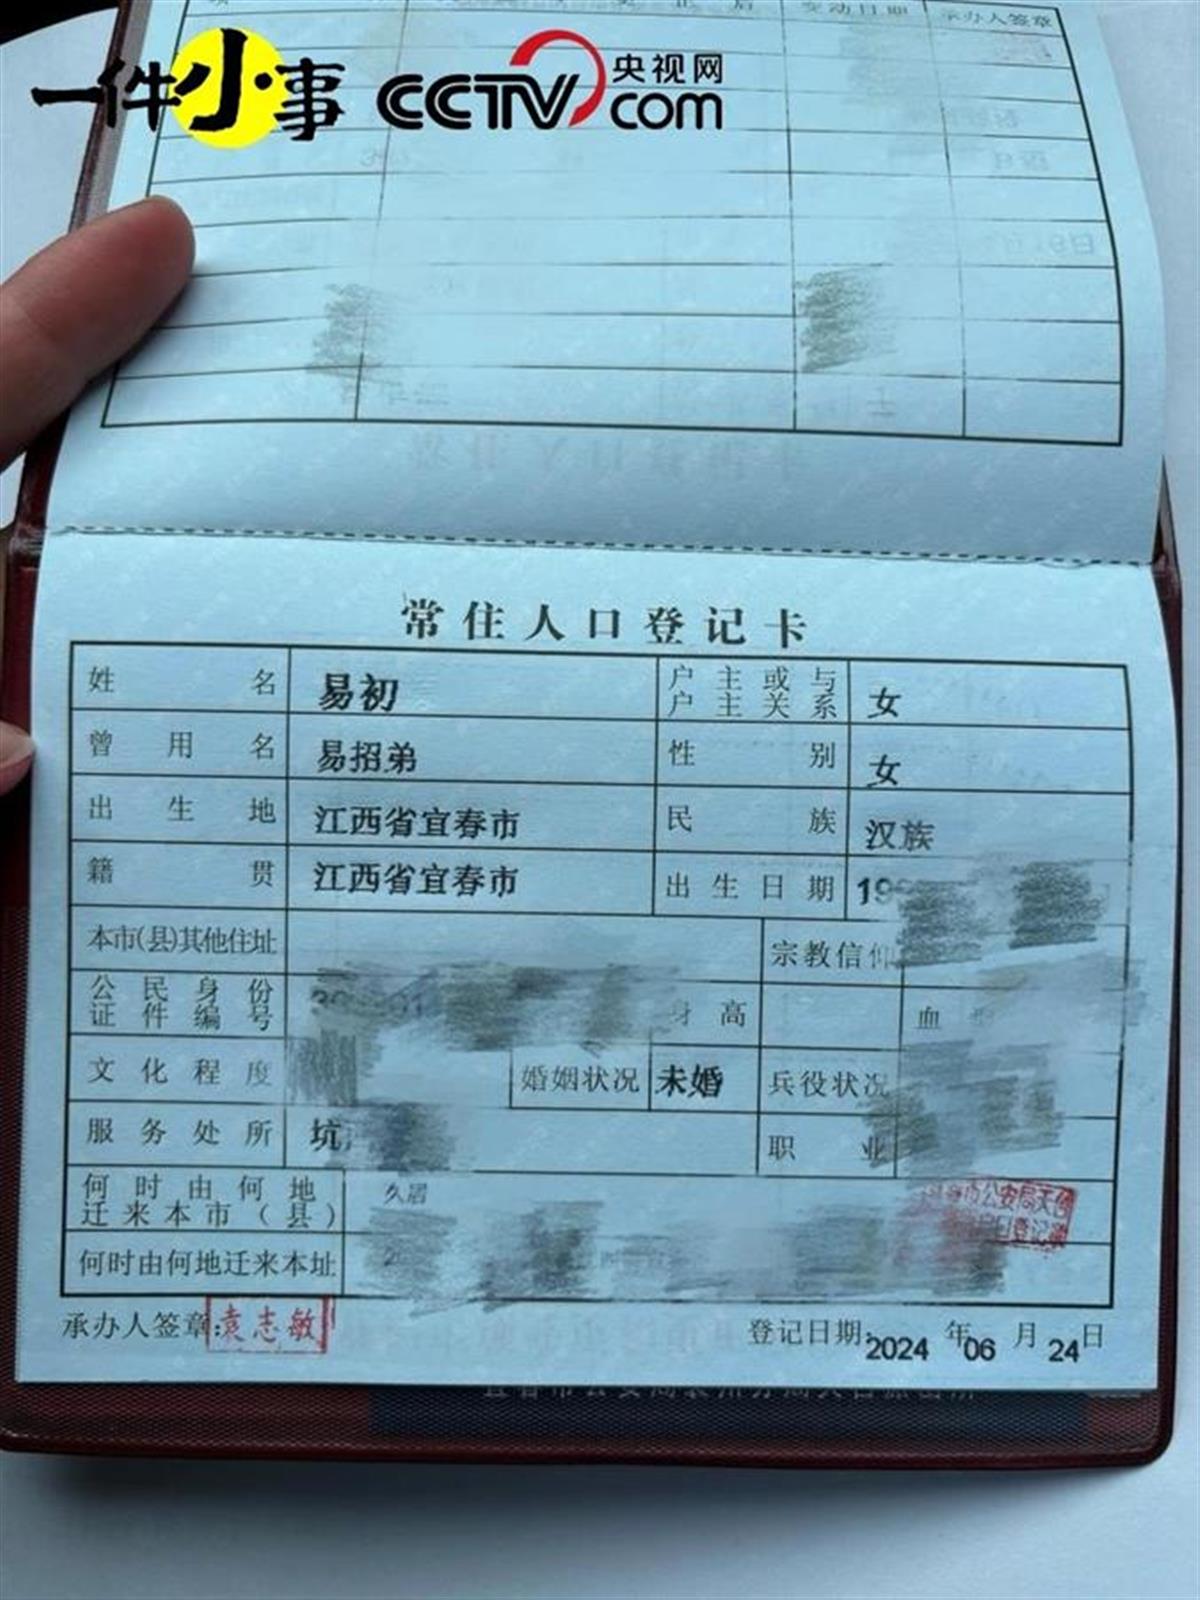 变动日期 承办人签章
一件小事 CCTV.com 央视网
常住人口登记卡
姓名 易初 户主或与户主关系 女
曾用名 易招弟 性别 女
出生地 江西省宜春市 民族 汉族
籍贯 江西省宜春市 出生日期 19
本市(县)其他住址 宗教信仰
公民身份证件编号 身高 血
文化程度 婚姻状况 未婚 兵役状况
服务处所 坑 职业
何时由何地迁来本市(县) 久居
何时由何地迁来本址
承办人签章: 袁志敏 登记日期: 2024年06月24日